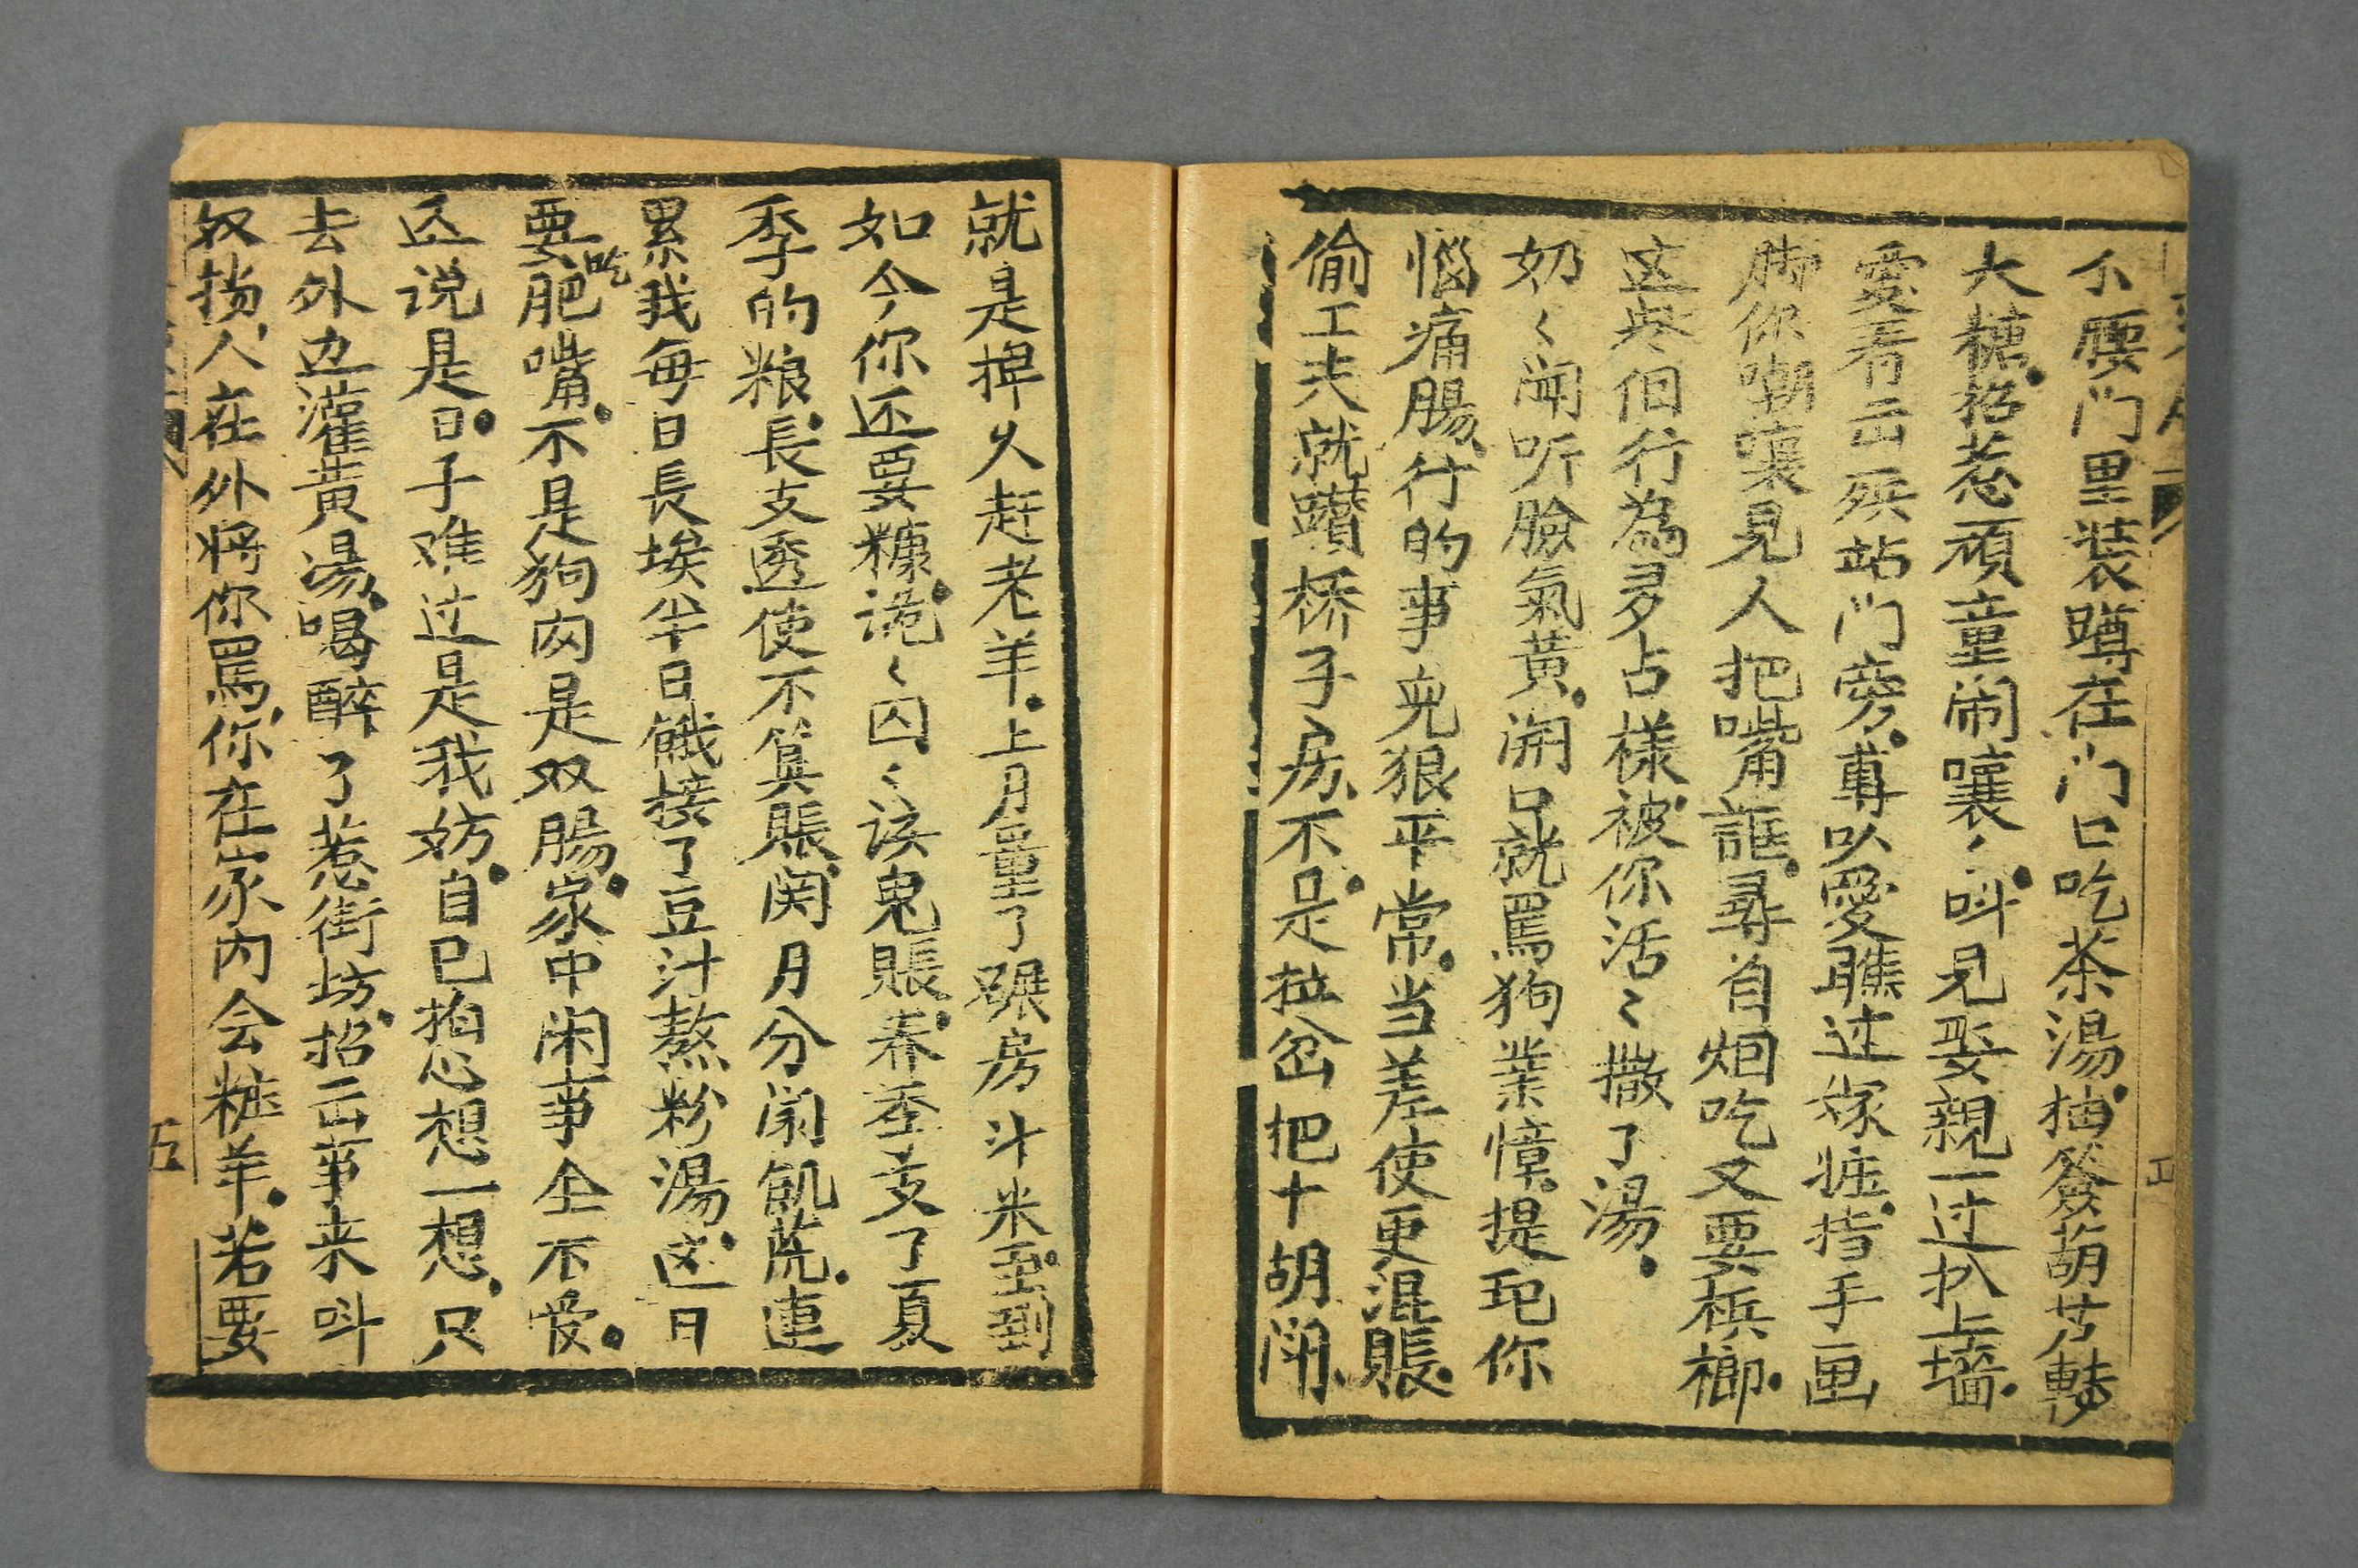 不腰门里装蹲在门口吃茶湯抽簽葫芦轉
大糖招惹頑童闹嚷く叫見娶親一过扒上墻
愛看云殡站门旁專以愛瞧过嫁粧指手画
脚你嘲嚷見人把嘴誆尋自烟吃又要槟榔
这些個行為多占樣被你活〻撒了湯
奶〻闻听臉氣黄開口就罵狗業幛提起你
惱痛腸行的事兒狠平常当差使更混賬
偷工夫就躦桥子房不是拉岔把十胡闹
就是捍火赶老羊上月量了碾房斗米至到
如今你还要糠窇〻囚〻该鬼賬春季支了夏
季的粮長支透使不算賬関月分闹飢荒連
累我每日長挨半日餓接了豆汁熬粉湯这日
要吃肥嘴不是狗肉是双腸家中闲事全不爱
这说是日子难过是我妨自己拍心想一想只
去外边灌黄湯喝醉了惹街坊招云事来叫
奴搪人在外将你罵你在家内会粧羊若要
五